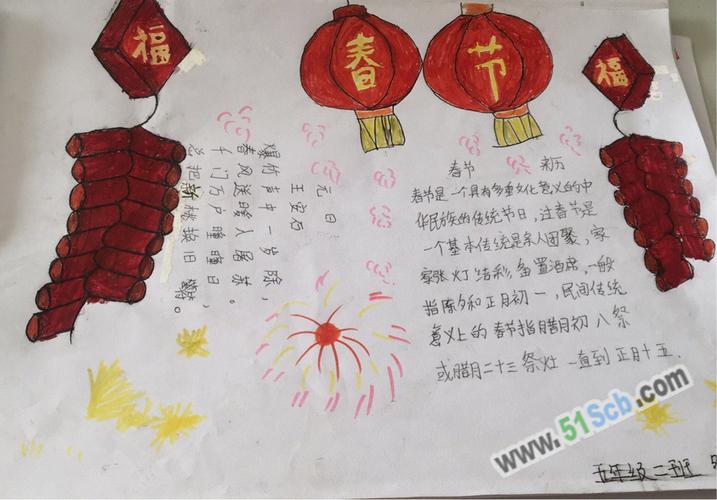 福
春
节
福
元日
王安石
爆竹声中一岁除,
春风送暖入屠苏。
千门万户瞳瞳日,
总把新桃换旧。
春节 来历
春节是一个具有多重文化意义的中
华民族的传统节日,过春节是
一个基本传统是亲人团聚,家
家张灯结彩,备置酒席,一般
指除夕和正月初一,民间传统
意义上的春节指腊月初八祭
或腊月二十三祭灶一直到正月十五.
www.51Scb.com
五年级二班